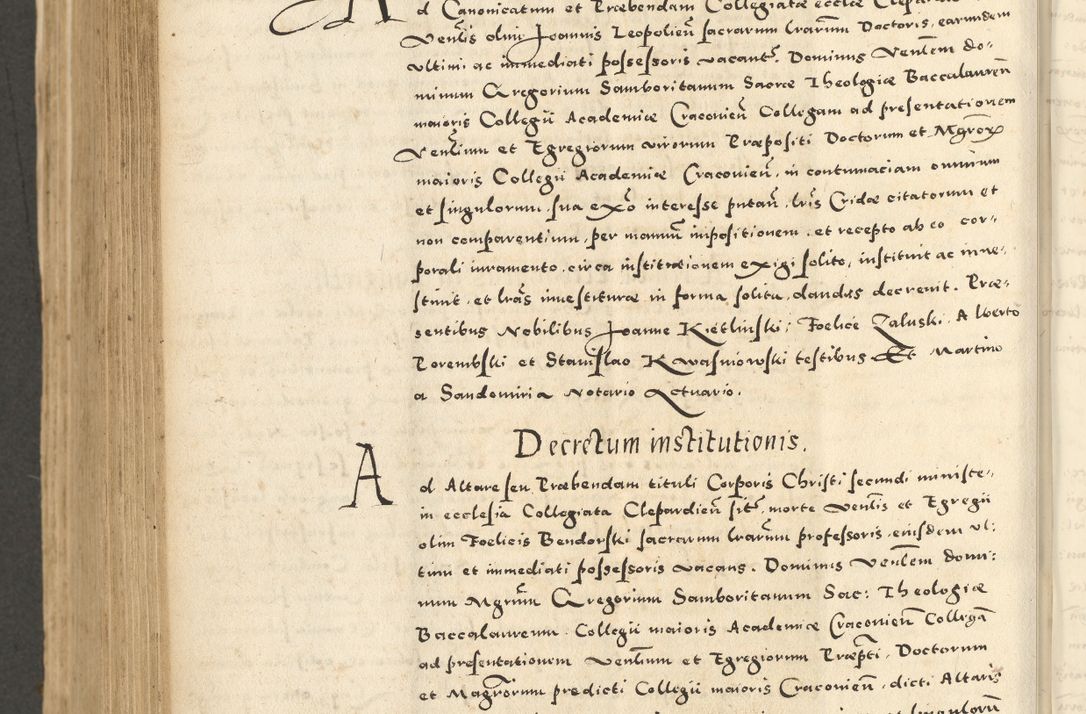 Ad Canonicatum et Præbendam Collegiatæ eccłæ
Venłis olim Joannis Leopolień sacrarum lrarum Doctoris, earumdem
ultimi ac immediati possessoris vacant. Dominus Venłem do-
minum Gregorium Samboritanum Sacræ Theologiæ Baccalaureń
maioris Collegii Academiæ Cracovień Collegam ad presentationem
Venłium et Egregiorum virorum Præpositi Doctorum et Mgrorum
maioris Collegii Academiæ Cracovień, in contumaciam omnium
et singulorum, sua exo interesse putań, lris Cridæ citatorum et
non comparentium, per manuu impositionem, et recepto ab eo cor-
porali iuramento, circa institutionem exigi solito, instituit ac inve-
stivit, et lras investituræ in forma solita, dandas decrevit. Præ-
sentibus Nobilibus Joanne Kietlinski, Foelice Zaluski, Alberto
Porembski et Stanislao Kwasniowski testibus Et Martino
a Sandomiria Notario Actuario.
Decretum institutionis.
Ad Altare seu Præbendam tituli Corporis Christi secundi ministe-
in ecclesia Collegiata Clepardień sit, morte Venłis et Egregii
olim Foelicis Bendorski sacrarum lrarum professoris, eiusdem ul-
timi et immediati possessoris vacans. Dominus Venłem domi-
num Mgrum Gregorium Samboritanum Sac: Theologiæ
Baccalaureum, Collegii maioris Academiæ Cracovień Collegã
ad presentationem Venłium et Egregiorum Præpti, Doctorum
et Magrorum predicti Collegii maioris Cracovień, dicti Altaris
et singulorũ